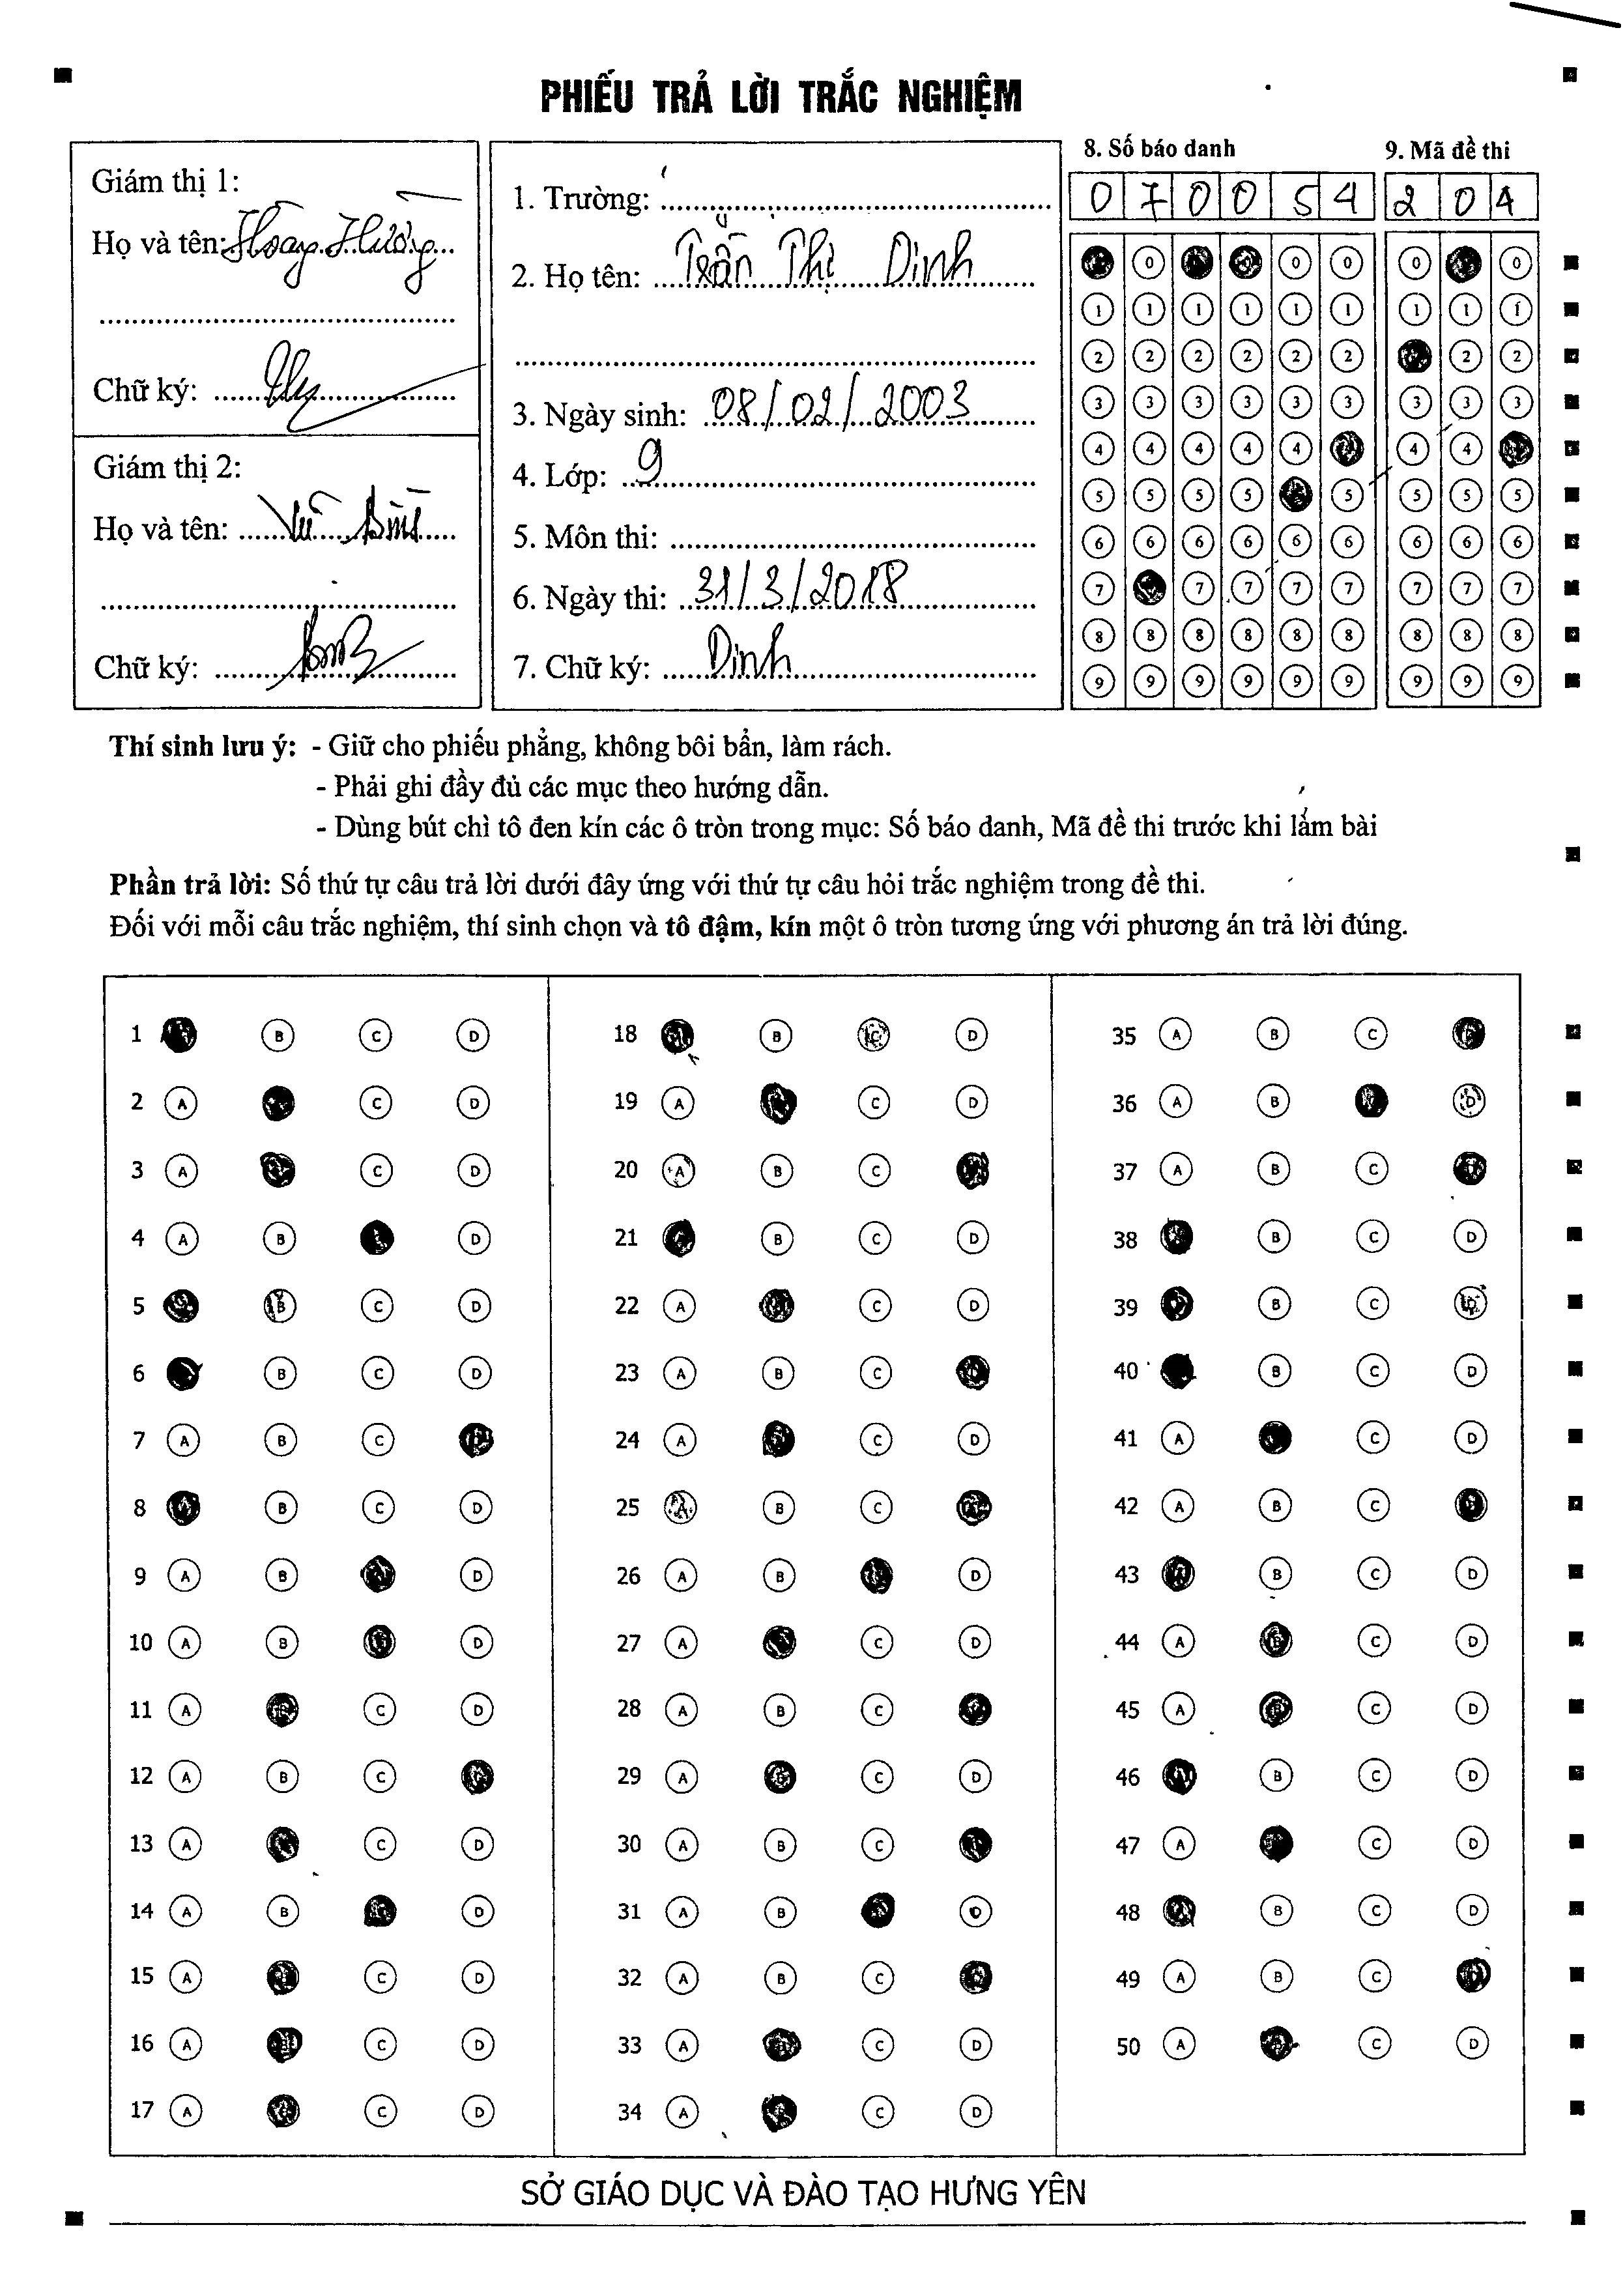 PHIẾU TRẢ LỜI TRẮC NGHIỆM
Giám thị 1:
Họ và tên: Hoàng Hường
Chữ ký:
Giám thị 2:
Họ và tên: Vũ
Chữ ký:
1. Trường:
2. Họ tên: Trần Thị Dinh
3. Ngày sinh: 08/02/2003
4. Lớp: 9
5. Môn thi:
6. Ngày thi: 31/3/2018
7. Chữ ký: Dinh
8. Số báo danh
070054
9. Mã đề thi
204
0 0 0 0 0
1 1 1 1 1 1 1 1 1
2 2 2 2 2 2 2 2
3 3 3 3 3 3 3 3 3
4 4 4 4 4 4 4
5 5 5 5 5 5 5 5
6 6 6 6 6 6 6 6 6
7 7 7 7 7 7 7 7
8 8 8 8 8 8 8 8 8
9 9 9 9 9 9 9 9 9
Thí sinh lưu ý: - Giữ cho phiếu phẳng, không bôi bẩn, làm rách.
- Phải ghi đầy đủ các mục theo hướng dẫn.
- Dùng bút chì tô đen kín các ô tròn trong mục: Số báo danh, Mã đề thi trước khi làm bài
Phần trả lời: Số thứ tự câu trả lời dưới đây ứng với thứ tự câu hỏi trắc nghiệm trong đề thi.
Đối với mỗi câu trắc nghiệm, thí sinh chọn và tô đậm, kín một ô tròn tương ứng với phương án trả lời đúng.
1 B C D
2 A C D
3 A C D
4 A B D
5 B C D
6 B C D
7 A B C
8 B C D
9 A B D
10 A B D
11 A C D
12 A B C
13 A C D
14 A B D
15 A C D
16 A C D
17 A C D
18 B C D
19 A C D
20 A B C
21 B C D
22 A C D
23 A B C
24 A C D
25 A B C
26 A B D
27 A C D
28 A B C
29 A C D
30 A B C
31 A B D
32 A B C
33 A C D
34 A C D
35 A B C
36 A B D
37 A B C
38 B C D
39 B C D
40 B C D
41 A C D
42 A B C
43 B C D
44 A B C D
45 A B C D
46 B C D
47 A C D
48 B C D
49 A B C
50 A C D
SỞ GIÁO DỤC VÀ ĐÀO TẠO HƯNG YÊN